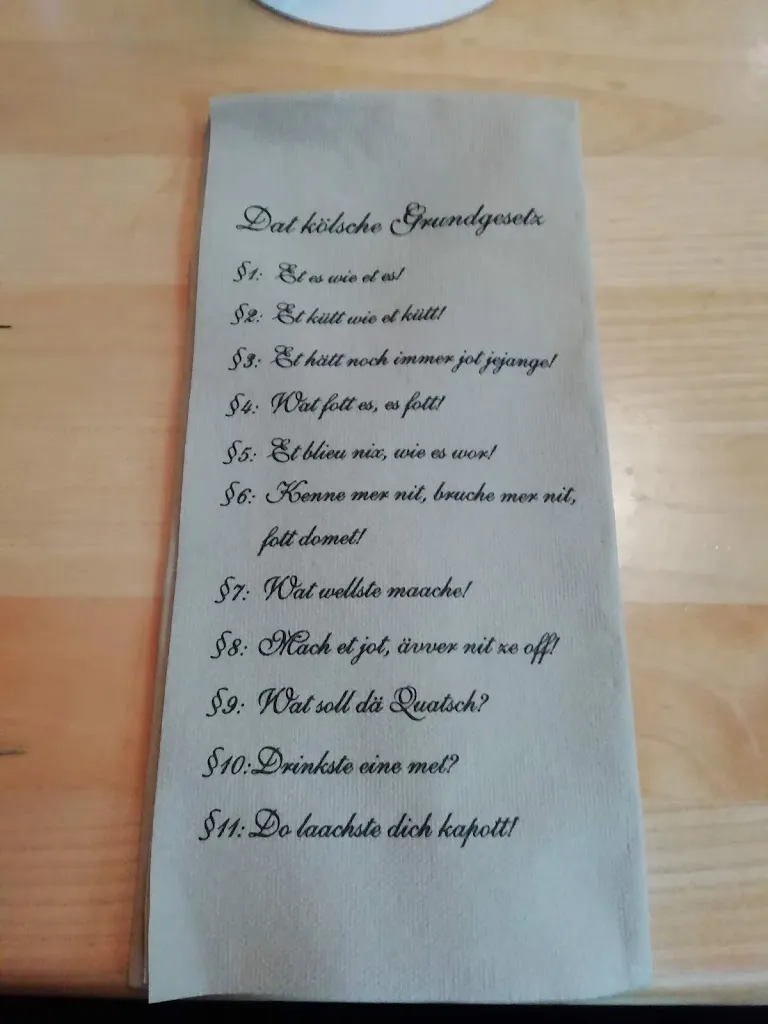 Dat kölsche Grundgesetz
§1: Et es wie et es!
§2: Et kütt wie et kütt!
§3: Et hätt noch immer jot jejange!
§4: Wat fott es, es fott!
§5: Et blieu nix, wie es wor!
§6: Kenne mer nit, bruche mer nit,
fott domet!
§7: Wat wellste maache!
§8: Mach et jot, ävver nit ze off!
§9: Wat soll dä Quatsch?
§10: Drinkste eine met?
§11: Do laachste dich kapott!